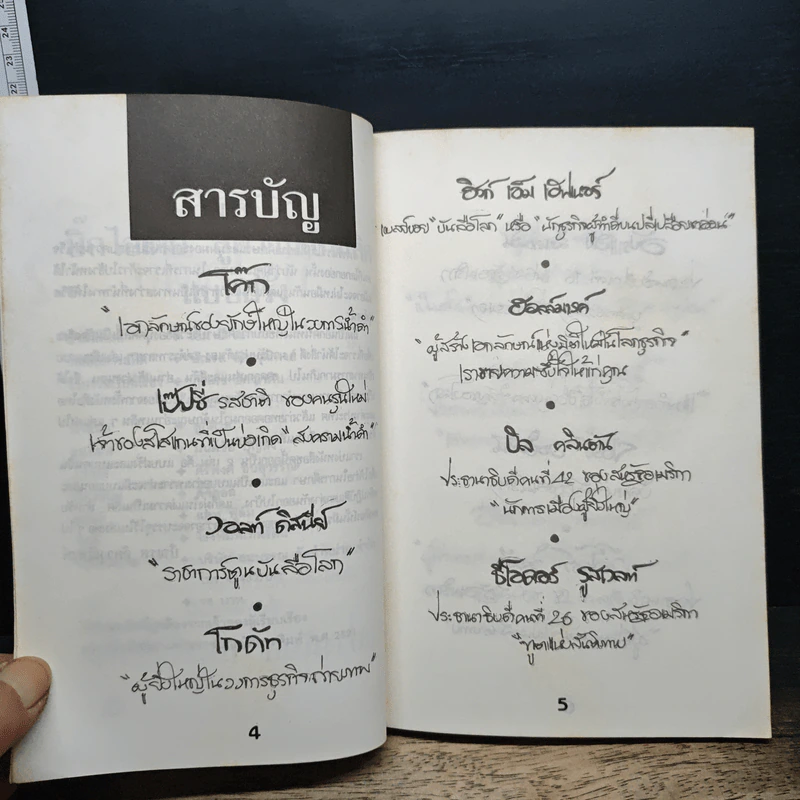 สารบัญ
โค้ก
"เอกลักษณ์ของยักษ์ใหญ่ในวงการน้ำดำ"
•
เป๊ปซี่ รสชาติ ของคนรุ่นใหม่
เจ้าของสโลแกนที่เป็นบ่อเกิด "สงครามน้ำดำ"
•
วอลท์ ดิสนีย์
"ราชาการ์ตูนบันลือโลก"
•
โกดัก
"ผู้ยิ่งใหญ่ในวงการธุรกิจถ่ายภาพ"
4
ฮิวก์ เอ็ม เฮฟเนอร์
เพลย์บอย "บันลือโลก" หรือ "นักธุรกิจผู้ทำดีบนเปลือยล่อน"
•
ฮอลล์มาร์ค
"ผู้สร้างเอกลักษณ์แห่งมิตรใหม่ในโลกธุรกิจ"
เราขายความซึ้งใจให้แก่คุณ
•
บิล คลินตัน
ประธานาธิบดีคนที่ 42 ของสหรัฐอเมริกา
"นักการเมืองผู้ยิ่งใหญ่"
•
ธีโอดอร์ รูสเวลท์
ประธานาธิบดีคนที่ 26 ของสหรัฐอเมริกา
"ทูตแห่งสันติภาพ"
5
22
23
24